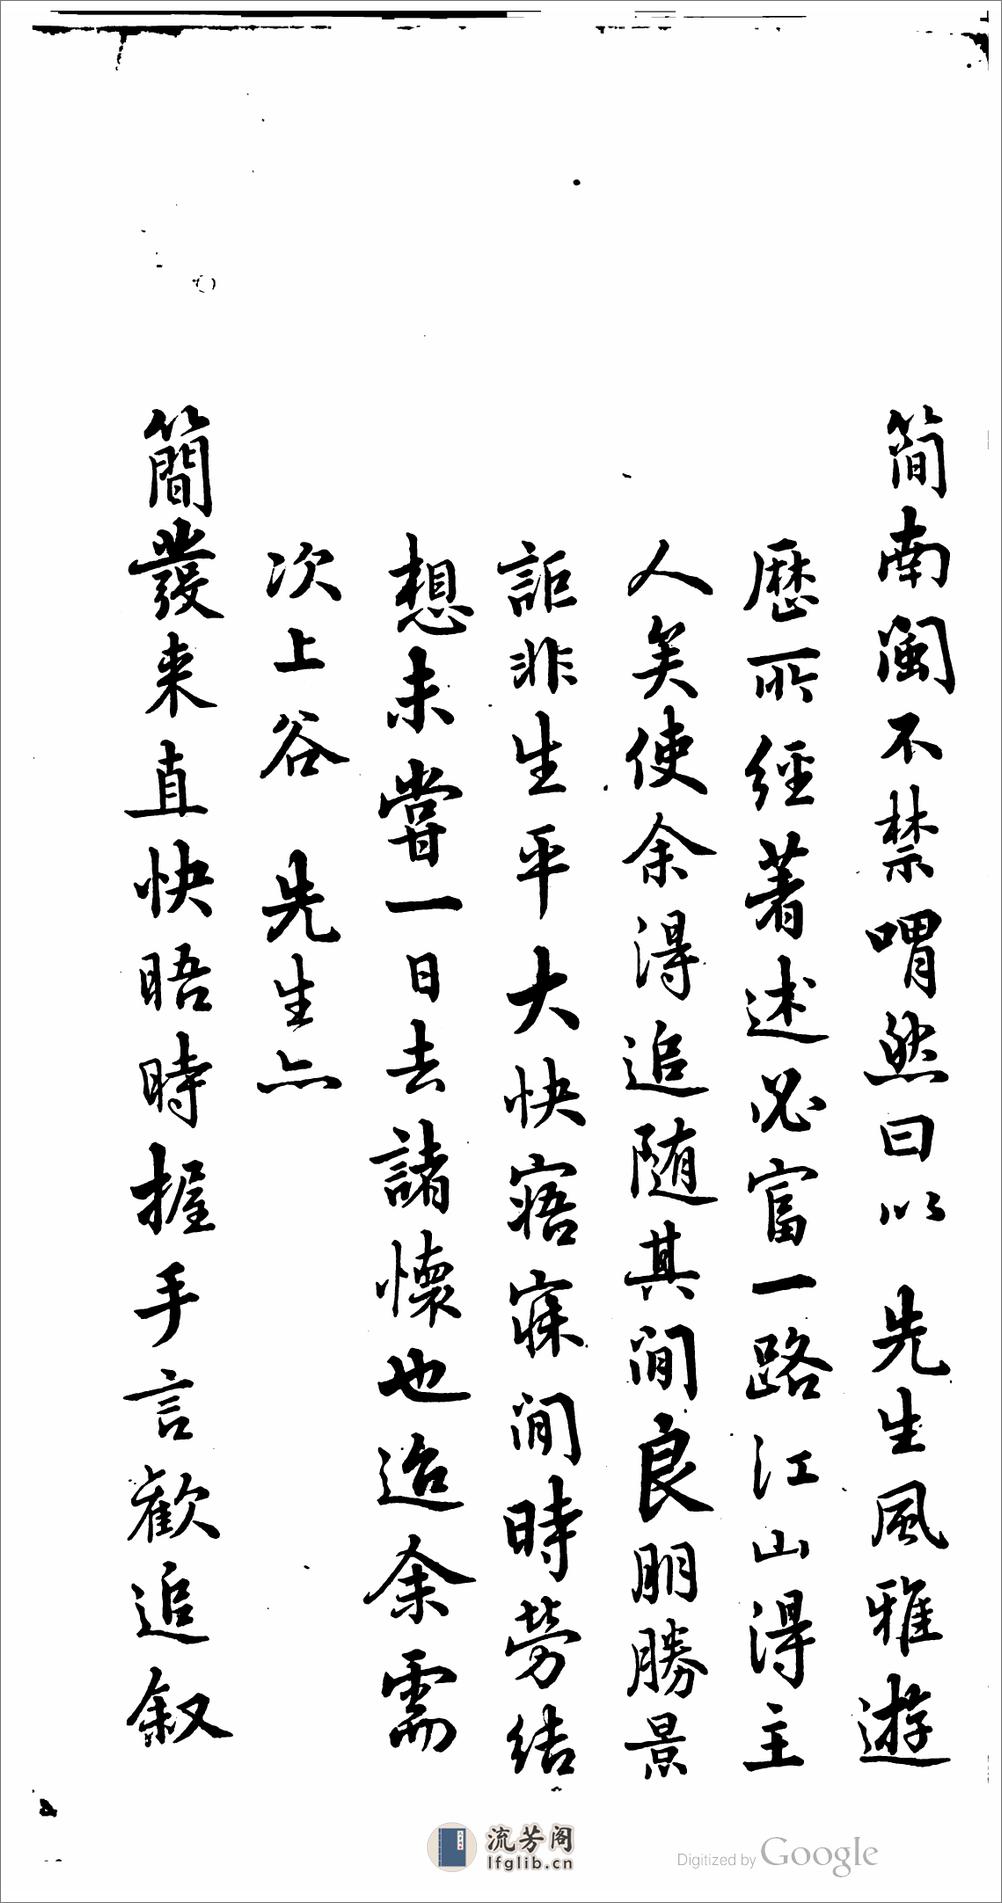 简南閩不禁喟然曰以　先生風雅遊
歷所經著述必富一路江山得主
人矣使余得追随其间良朋勝景
詎非生平大快寤寐间時勞结
想未嘗一日去諸懷也迨余需
次上谷　先生亦
簡發来直快晤時握手言歡追叙
流芳阁
lfglib.cn
Digitized by Google